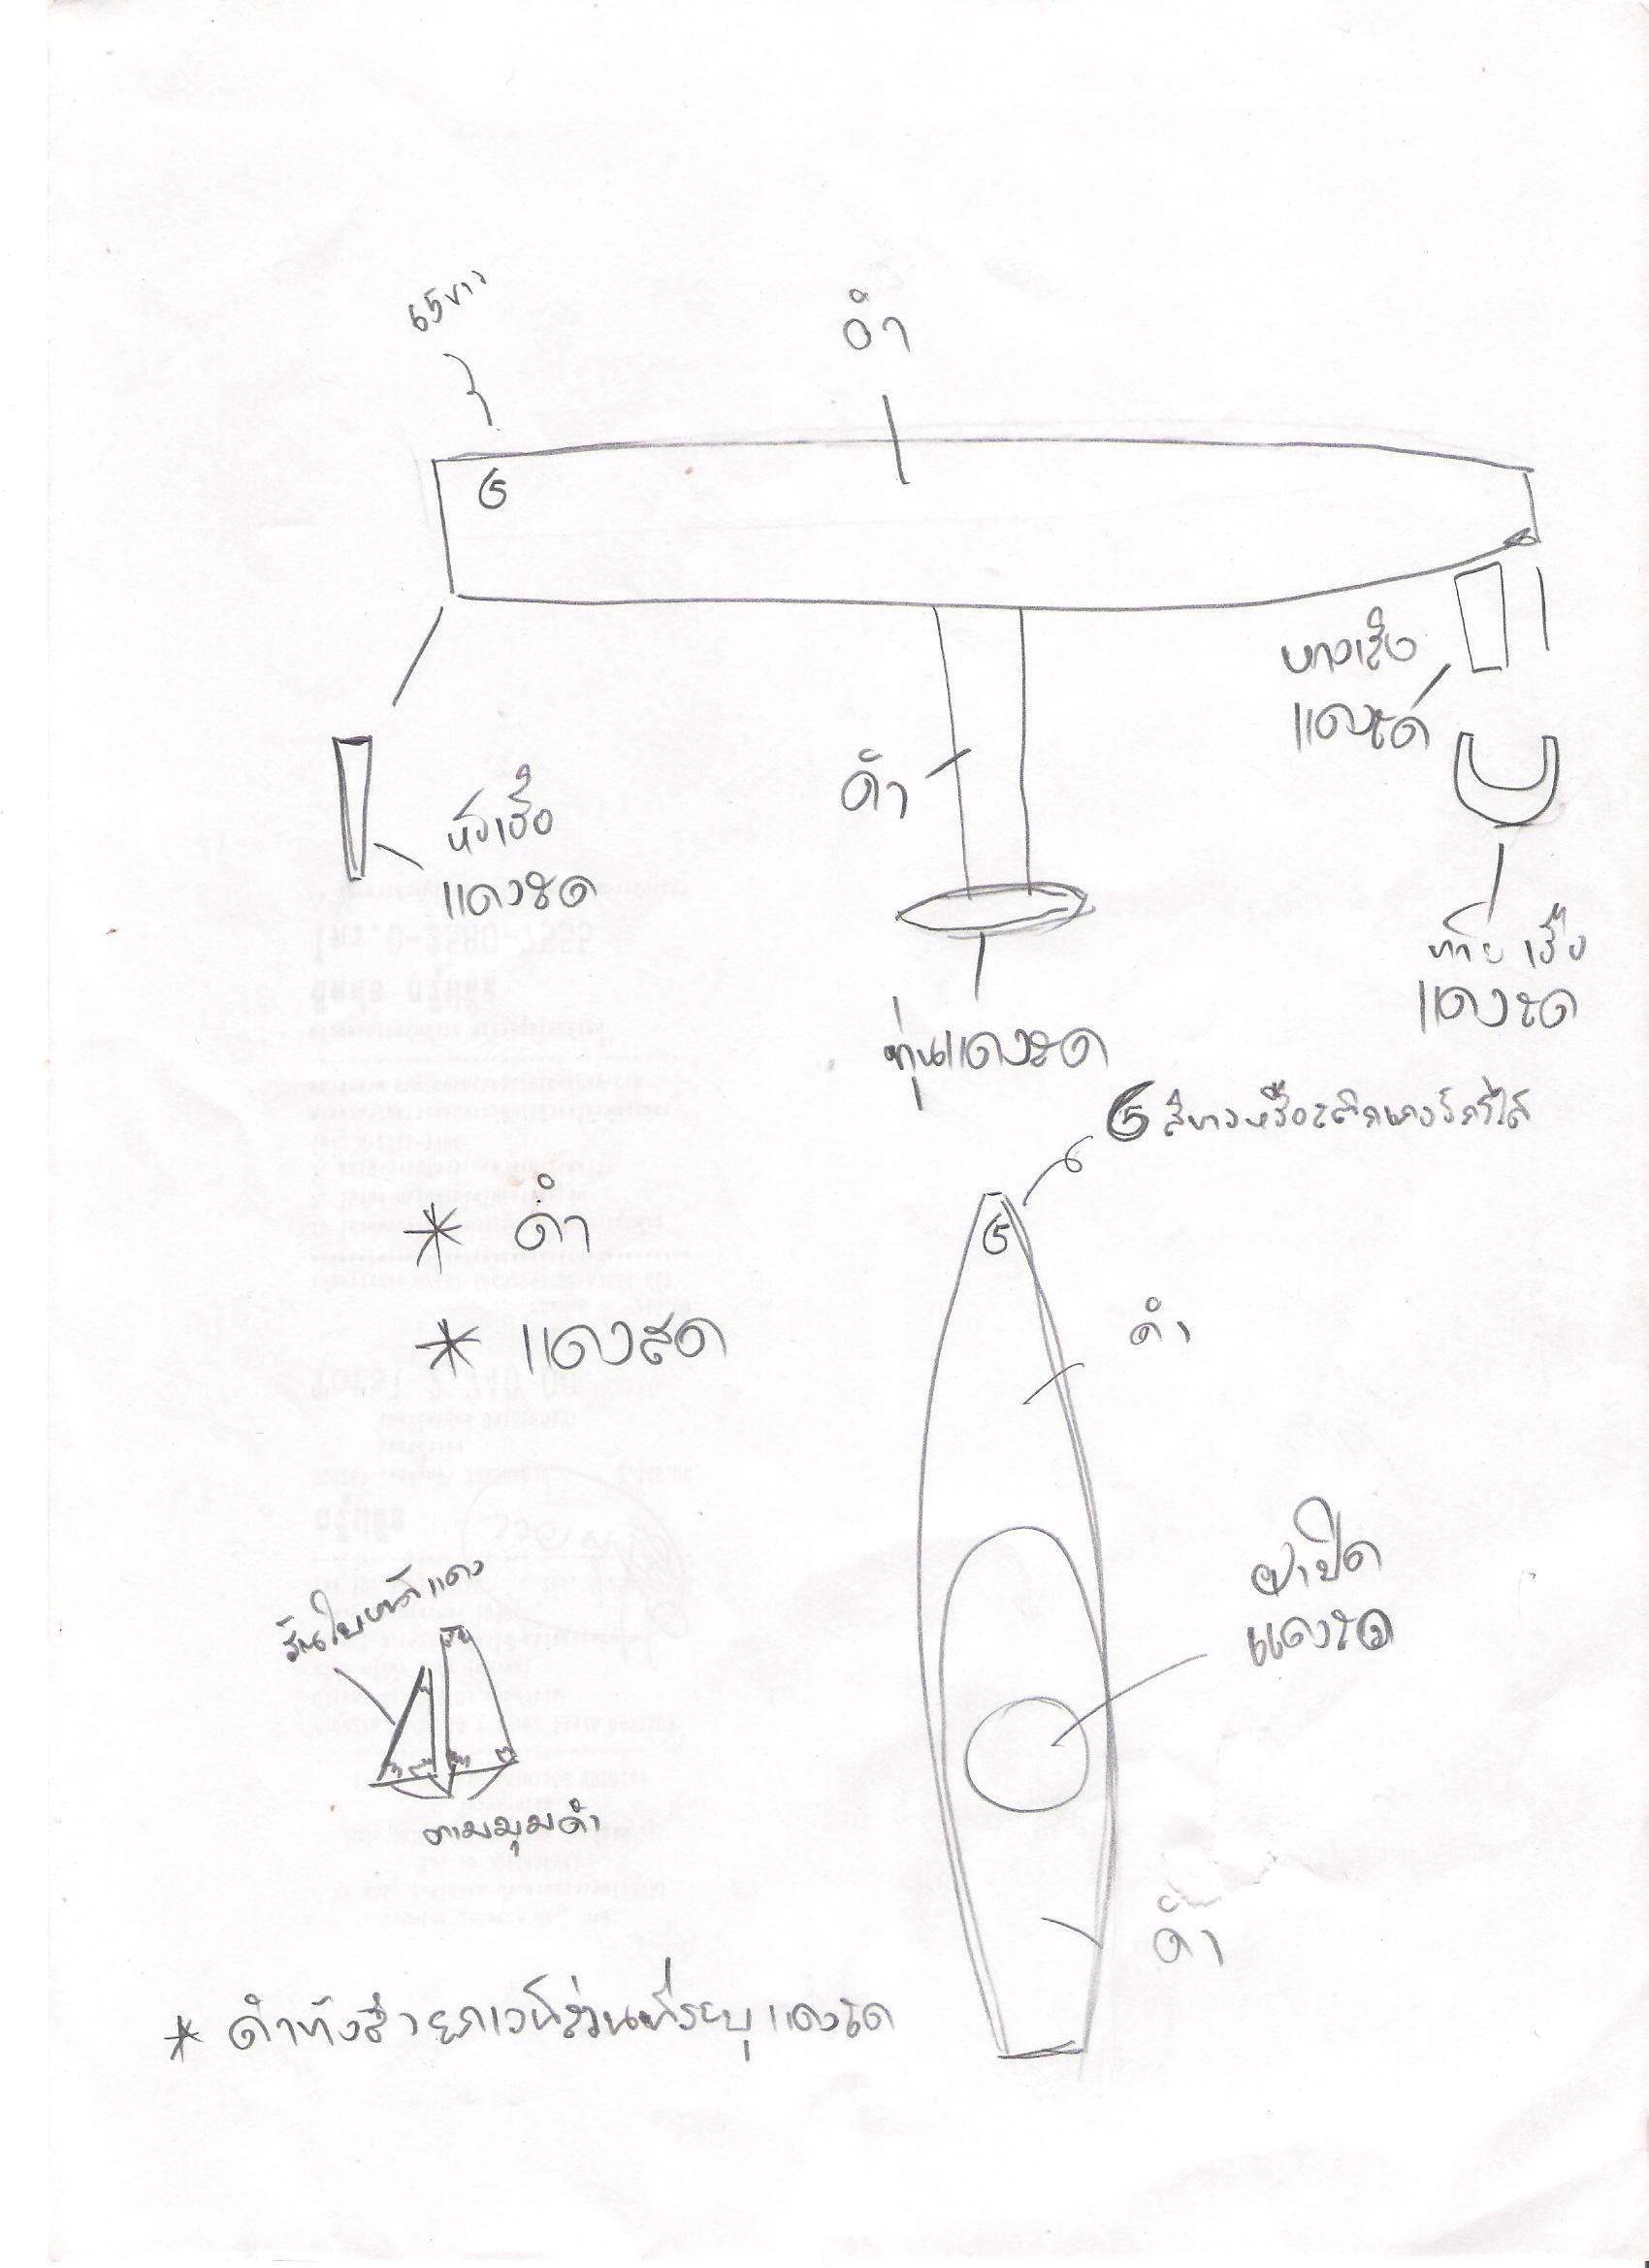 65 ขาว
ดำ
65
หางเสือ
แดงสด
ดำ
หัวเรือ
แดงสด
ท้ายเรือ
แดงสด
ทุ่นแดงสด
65 สีขาวหรือสติกเกอร์ก็ได้
65
* ดำ
* แดงสด
ดำ
ฝาปิด
แดงสด
แดง
ตามมุมดำ
ดำ
* ดำทั้งลำยกเว้นส่วนที่ระบุแดงสด